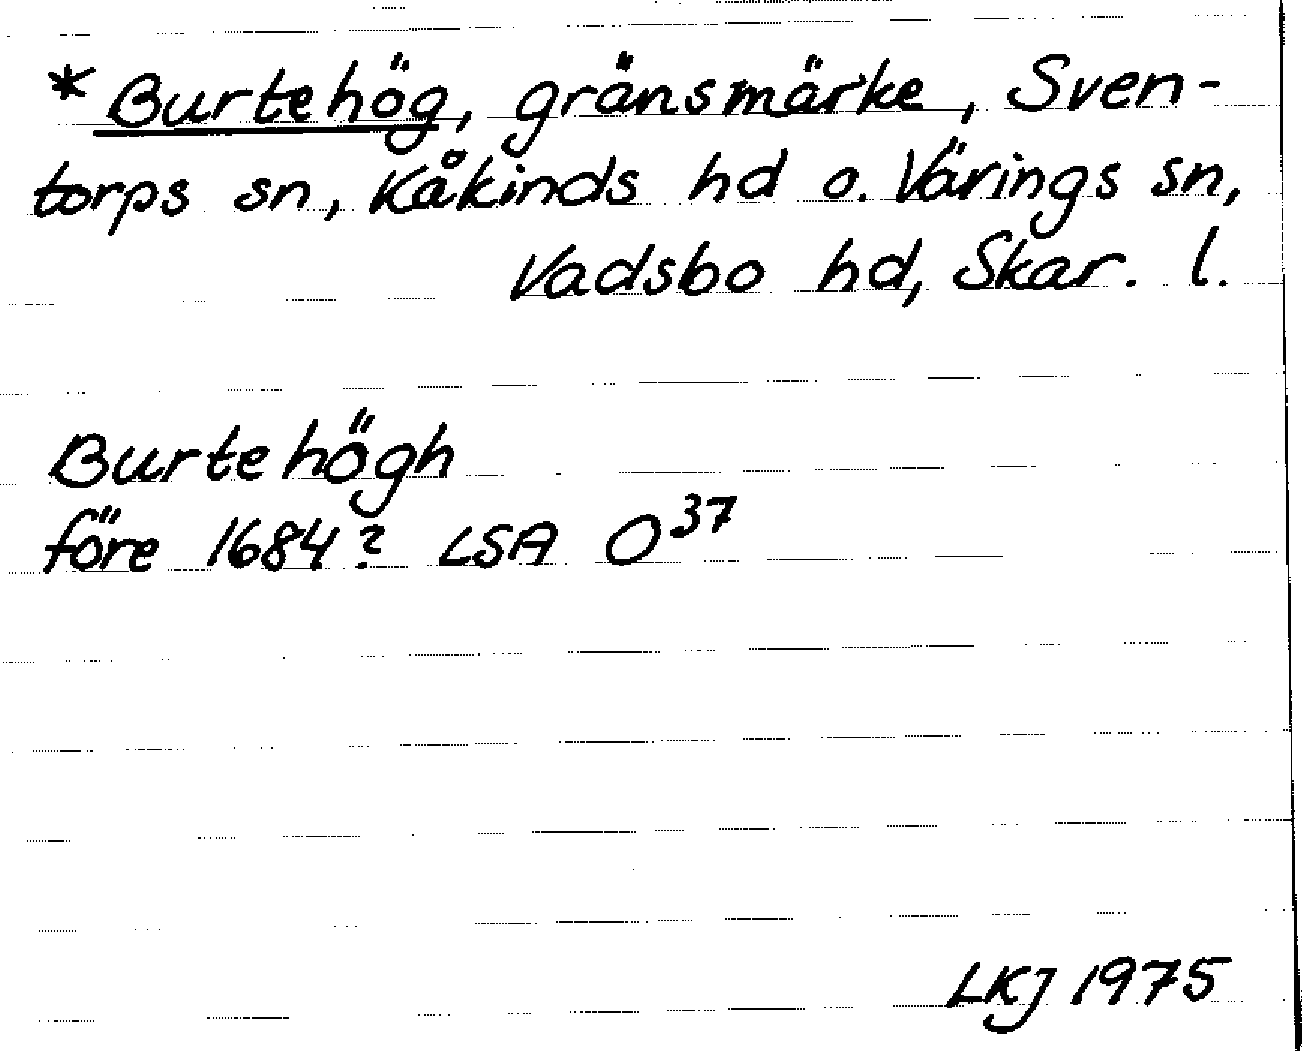 * Burtehög, gränsmärke, Sven-
torps sn, Kåkinds hd o. Värings sn,
Vadsbo hd, Skar. l.
Burtehögh
före 1684? LSA O³⁷
LKJ 1975